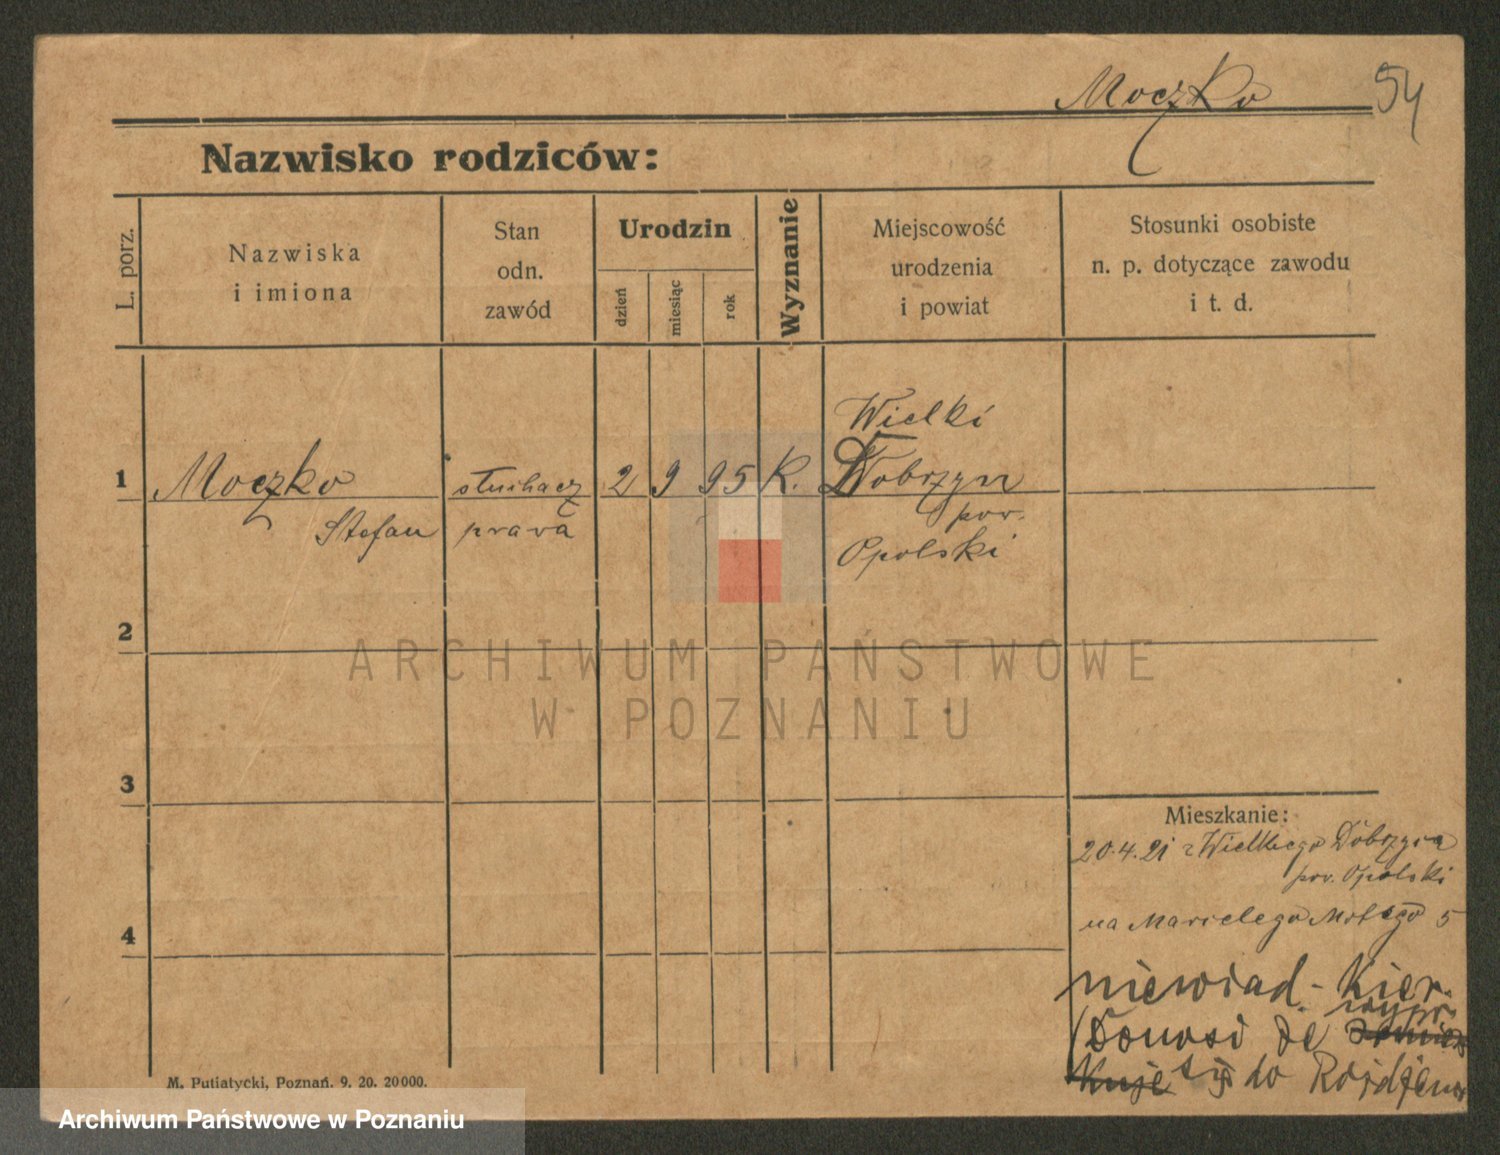 Moczko 54
Nazwisko rodziców:
L. porz.
Nazwiska
i imiona
Stan
odn.
zawód
Urodzin
dzień
miesiąc
rok
Wyznanie
Miejscowość
urodzenia
i powiat
Stosunki osobiste
n. p. dotyczące zawodu
i t. d.
Wielki
1 Moczko słuchacz 2 9 95 K. Dobrzyn
Stefan prawa pow.
Opolski
2
ARCHIWUM PAŃSTWOWE
W POZNANIU
3
Mieszkanie:
20.4.21 z Wielkiego Dobrzynia
pow. Opolski
4
na 5
niewiad. - Kier.
wypr
Donosi że
się do
M. Putiatycki, Poznań. 9. 20. 20000.
Archiwum Państwowe w Poznaniu